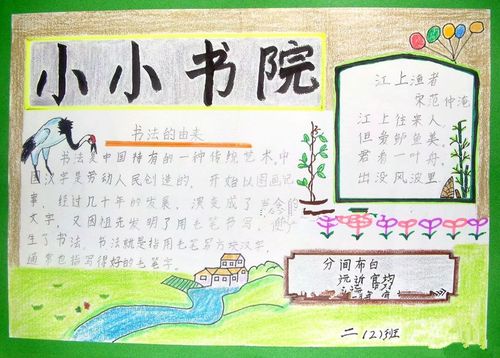 小小书院
书法的由来
书法是中国特有的一种传统艺术,中
国汉字是劳动人民创造的，开始以图画记
事，经过几十年的发展，演变成了当今的
文字，又因祖先发明了用毛笔书写，便产
生了书法。书法就是指用毛笔写方块汉字
通常也指写得好的毛笔字。
江上渔者
宋范仲淹
江上往来人，
但爱鲈鱼美。
君看一叶舟，
出没风波里。
分间布白
远近宜均
二(2)班